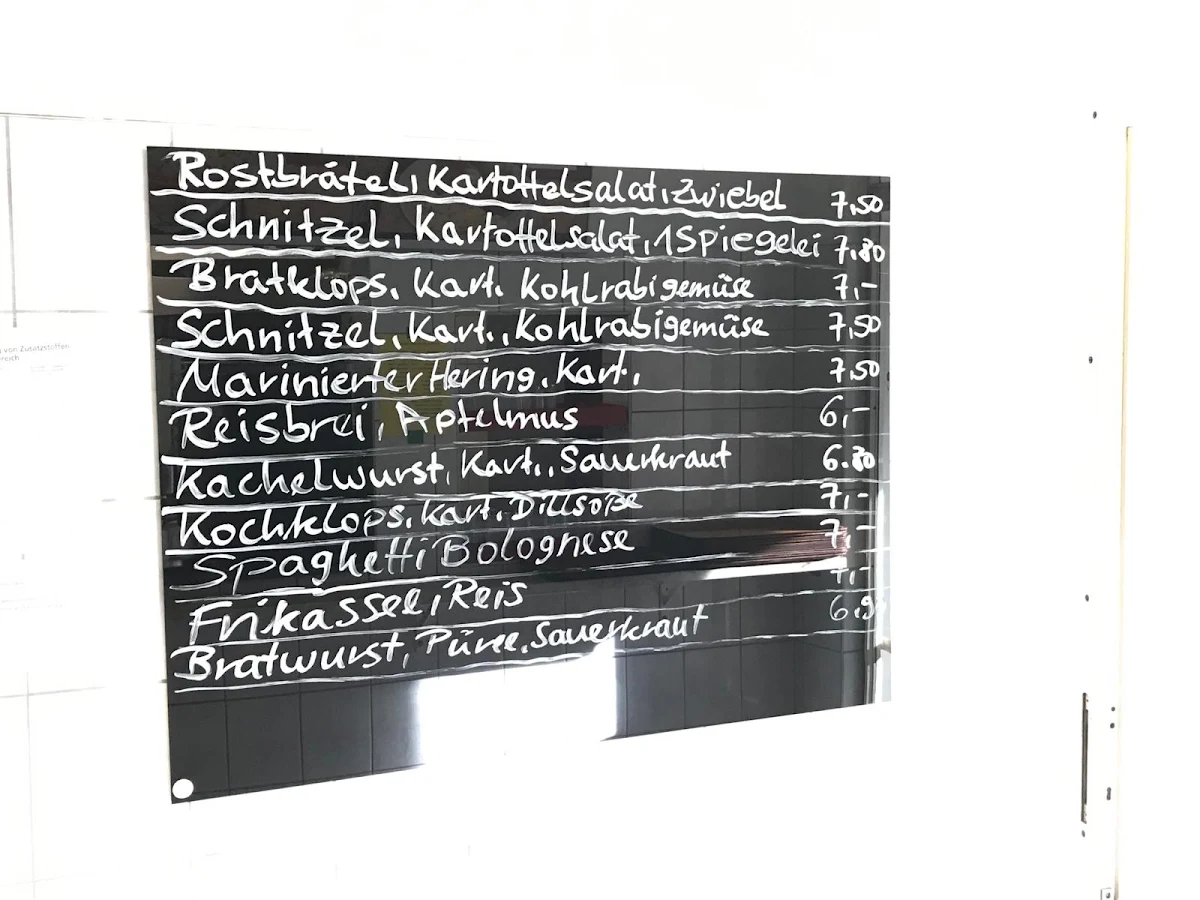 Rostbrätel, Kartoffelsalat, Zwiebel 7,50
Schnitzel, Kartoffelsalat, 1 Spiegelei 7,80
Bratklops, Kart. Kohlrabigemüse 7,-
Schnitzel, Kart., Kohlrabigemüse 7,50
Marinierter Hering, Kart. 7,50
Reisbrei, Apfelmus 6,-
Kachelwurst, Kart., Sauerkraut 6.80
Kochklops, Kart. Dillsoße 7,-
Spaghetti Bolognese 7,-
Frikassee, Reis 7,-
Bratwurst, Püree, Sauerkraut
von Zusatzstoffen